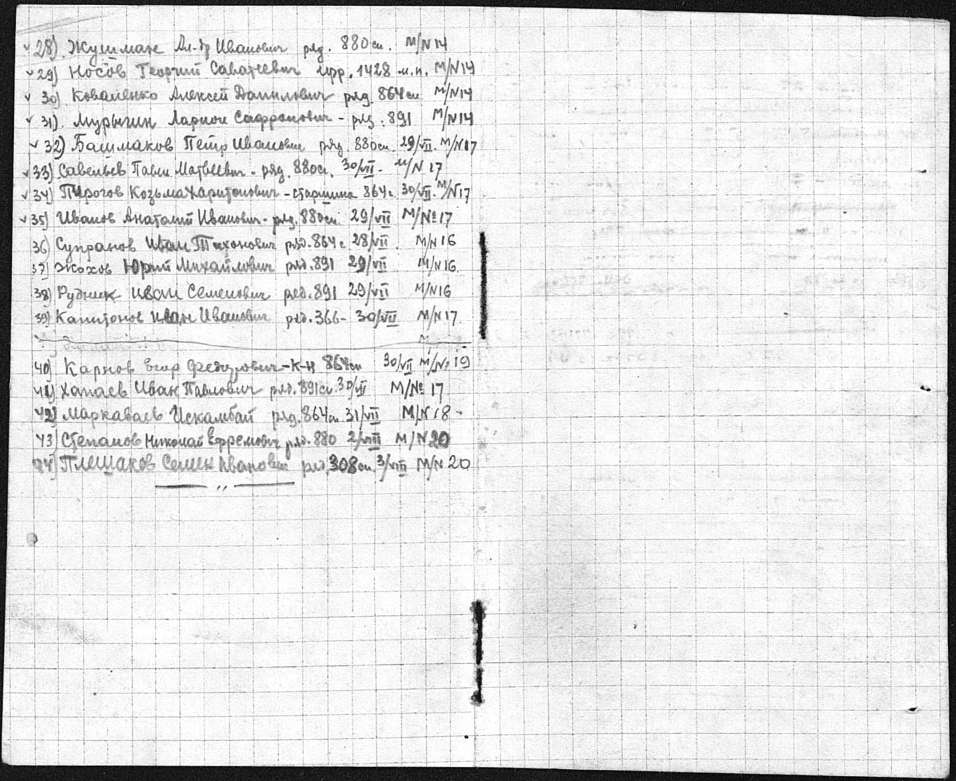 28). Жушман Ал-др Иванович ряд. 880сп. М/N14
29) Носов Георгий Саватеевич 1428 М/N14
30) Коваленко Алексей Данилович ряд. 864сп М/N14
31). Мурыгин Ларион Сафронович - ряд. 891 М/N14
32) Башмаков Петр Иванович ряд. 880сп. 29/VII. М/N17
33) Савельев Павел Матвеевич - ряд. 880сп. 30/VII - М/N17
34) Пирогов Козьма Харитонович - старшина 864с. 30/VII. М/N17
35) Иванов Анатолий Иванович - ряд. 880сп. 29/VII М/№17
36) Супранов Иван Тихонович ряд. 864с 28/VII. М/N16
37) Жохов Юрий Михайлович ряд. 891 29/VII М/N16
38) Рудник Иван Семенович ряд. 891 29/VII М/N16
39) Капитонов Иван Иванович ряд. 366 - 30/VII М/N17
40) Карпов Егор Федорович - к-н 864сп 30/VII М/№19
41) Хапаев Иван Павлович ряд. 891сп. 30/VII М/№17
42) Маркаваев Искамбай ряд. 864сп 31/VII М/N18
43) Степанов Николай Ефремович ряд. 880 2/VIII М/N20
44) Плешаков Семен Иванович ряд. 308сп. 3/VIII М/N20